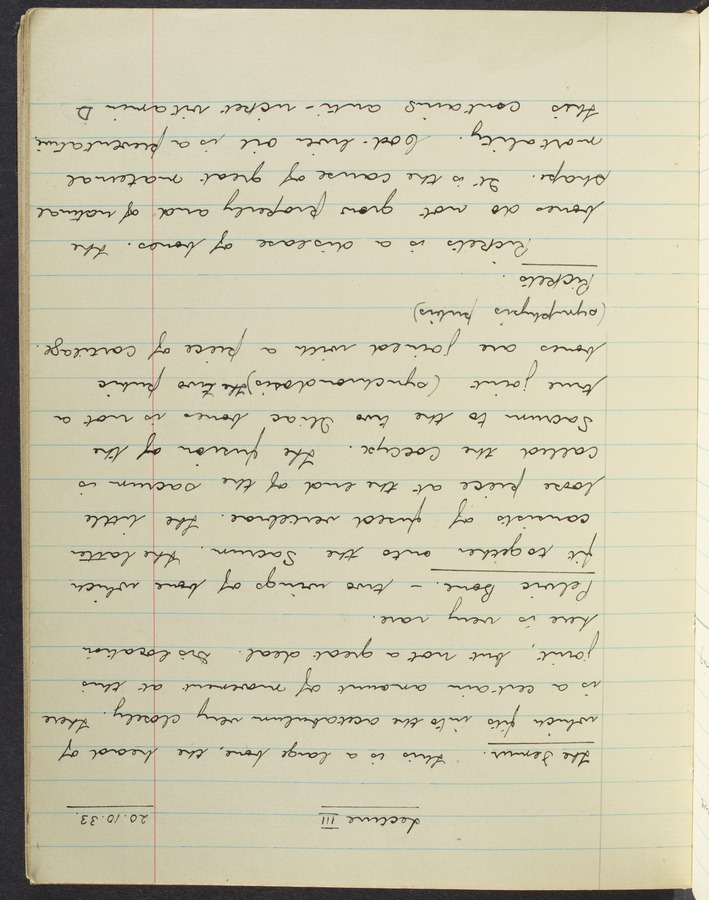 Lecture III 20.10.33.
The Femur. This is a large bone, the head of
which fits into the acetabulum very closely. There
is a certain amount of movement at this
joint, but not a great deal. Dislocation
here is very rare.
Pelvic Bone. - two wings of bone which
fit together onto the Sacrum. The latter
consists of fused vertebrae. The little
loose piece at the end of the sacrum is
called the Coccyx. The fusion of the
Sacrum to the two Iliac bones is not a
true joint (synchrondosis) the two pubic
bones are joined with a piece of cartilage.
(symphysis pubis)
Rickets.
Rickets is a disease of bones. The
bones do not grow properly and of natural
shape. It is the cause of great maternal
mortality. Cod-liver oil is a preventative
this contains anti-ricket vitamin D